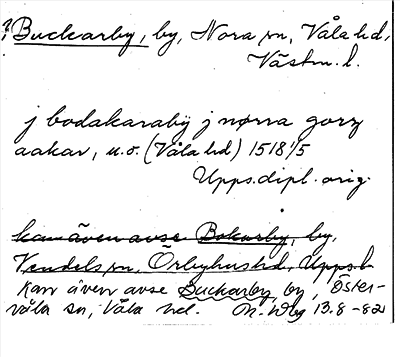 ? Buckarby, by, Nora sn, Våla hd,
Västm. l.
j bodakaraby j nørra gorz
aakar, u.o. (Våla hd) 1518 1/5
Upps. dipl. orig.
kan även avse Bokarby, by,
Vendels sn, Örbyhus hd, Upps. l.
Kan även avse Buckarby, by, Öster-
våla sn, Våla hd. M. Wbg 13.8-82